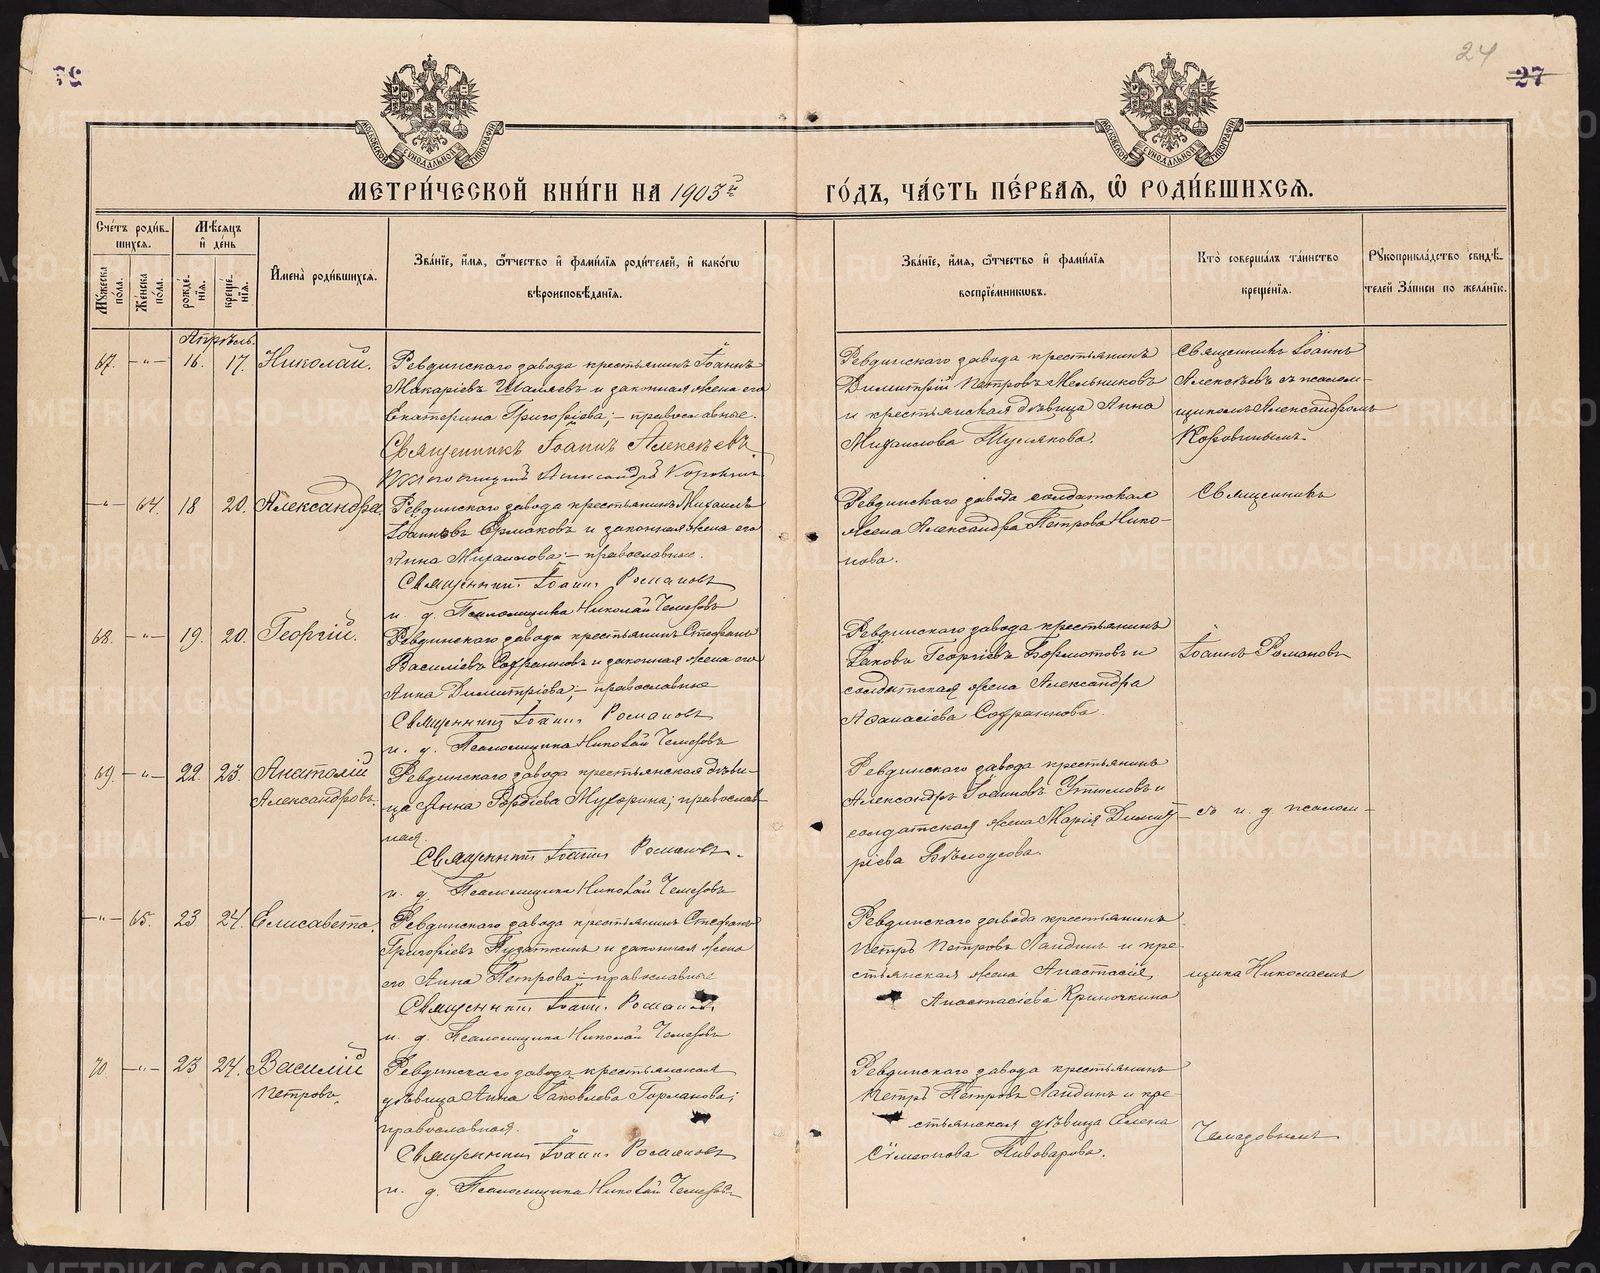 24
27
МОСКОВСКОЙ СѴНОДАЛЬНОЙ ТИПОГРАФІИ
МОСКОВСКОЙ СѴНОДАЛЬНОЙ ТИПОГРАФІИ
МЕТРИ́ЧЕСКОЙ КНИ́ГИ НА 1903й
ГО́ДЪ, ЧА́СТЬ ПЕ́РВАЯ, Ѡ РОДИ́ВШИХСЯ.
Сче́тъ роди́в-
шихся.
Мѣ́сяцъ
и҆ де́нь
Мꙋ́жеска по́ла.
Же́нска по́ла.
рожде́-нїя.
креще́-нїя.
И҆мена̀ роди́вшихся.
Зва́нїе, и҆́мя, ѻ҆́тчество и҆ фами́лїя роди́телей, и҆ како́гѡ
вѣроисповѣ́данїя.
Зва́нїе, и҆́мя, ѻ҆́тчество и҆ фами́лїя
воспрїе́мникѡвъ.
Кто̀ соверша́лъ та́инство
креще́нїя.
Рꙋкоприкла́дство свидѣ́-
телей за́писи по жела́нїю.
Апрѣль.
67. —„— 16. 17. Николай.
Ревдинскаго завода крестьянинъ Іоаннъ
Макаріевъ Шаляевъ и законная жена его
Екатерина Григоріева; – православные.
Священникъ Іоаннъ Алексѣевъ.
Псаломщикъ Александръ Коровинъ
Ревдинскаго завода крестьянинъ
Димитрій Петровъ Мельниковъ
и крестьянская дѣвица Анна
Михаилова
Священникъ Іоаннъ
Алексѣевъ съ псалом-
щикомъ Александромъ
Коровинымъ.
—„— 64. 18 20. Александра.
Ревдинскаго завода крестьянинъ Михаилъ
Іоанновъ Ермаковъ и законная жена его
Анна Михаилова: – православные.
Священникъ Іоаннъ Романовъ
и. д. Псаломщика Николай
Ревдинскаго завода солдатская
жена Александра Петрова Нико-
нова.
Священникъ
68. —„— 19. 20. Георгій.
Ревдинскаго завода крестьянинъ Стефанъ
Василіевъ Софроновъ и законная жена его
Анна Димитріева; – православные
Священникъ Іоаннъ Романовъ
и. д. Псаломщика Николай
Ревдинскаго завода крестьянинъ
Іаковъ Георгіевъ Бормотовъ и
солдатская жена Александра
Аѳанасіева
Іоаннъ Романовъ
69. —„— 22. 23. Анатолій
Александровъ.
Ревдинскаго завода крестьянская дѣви-
ца Анна Гордіева Мухорина; православ-
ная
Священникъ Іоаннъ Романовъ.
и. д. Псаломщика Николай
Ревдинскаго завода крестьянинъ
Александръ Іоанновъ Утюмовъ и
солдатская жена Марія Димит-
ріева Бѣлоусова.
съ и. д псалом-
—„— 65. 23 24. Елисавета.
Ревдинскаго завода крестьянинъ Стефанъ
Григоріевъ Пузаткинъ и законная жена
его Анна Петрова – православные
Священникъ Іоаннъ Романовъ.
и. д. Псаломщика Николай
Ревдинскаго завода крестьянинъ
Петръ Петровъ Ландинъ и кре-
стьянская жена Анастасія
Анастасіева Криночкина
щика Николаемъ
70. —„— 23 24. Василій
Петровъ.
Ревдинскаго завода крестьянская
дѣвица Анна Іаковлева Горланова;
православная.
Священникъ Іоаннъ Романовъ
и. д. Псаломщика Николай
Ревдинскаго завода крестьянинъ
Петръ Петровъ Ландинъ и кре-
стьянская дѣвица Елена
Сѵмеонова Пивоварова.
METRIKI.GASO-URAL.RU